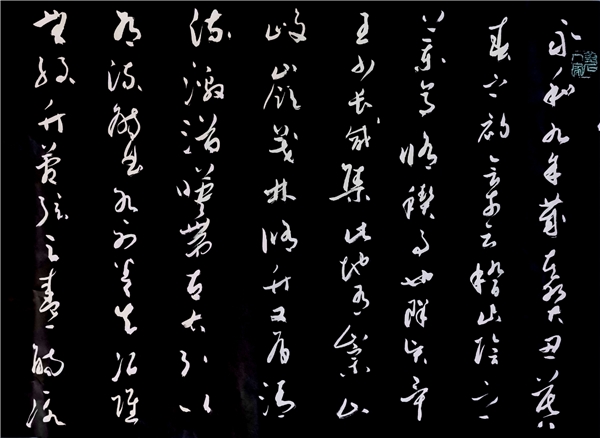 永和九年歲在癸丑暮
春之初會于會稽山陰之
蘭亭脩稧事也群賢畢
至少長咸集此地有崇山
峻嶺茂林脩竹又有清
流激湍暎帶左右引以
為流觴曲水列坐其次雖
無絲竹管弦之盛一觴一詠